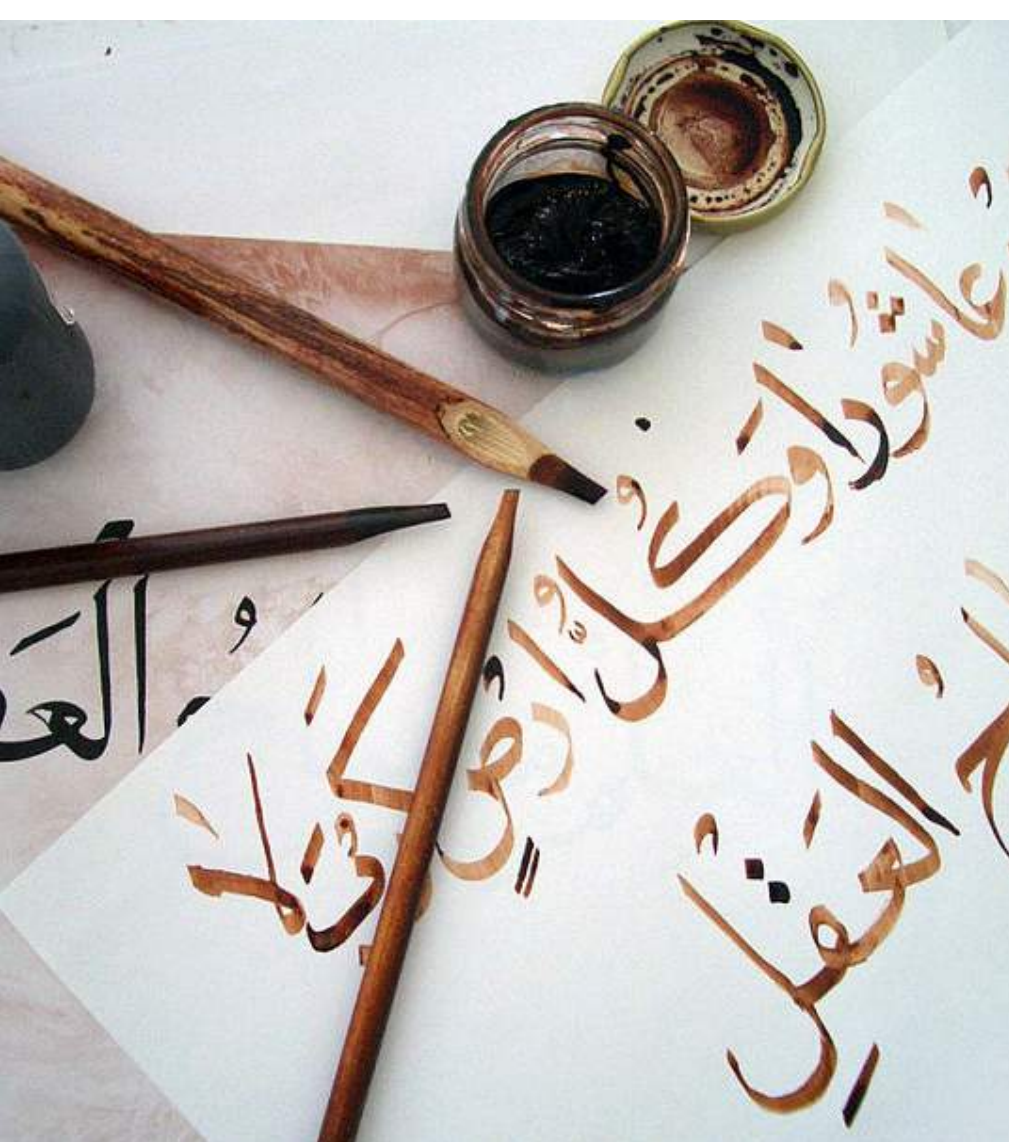 عاشُورَا وَكُلُّ ارْضٍ كَرْبَلا
العَقْلِ